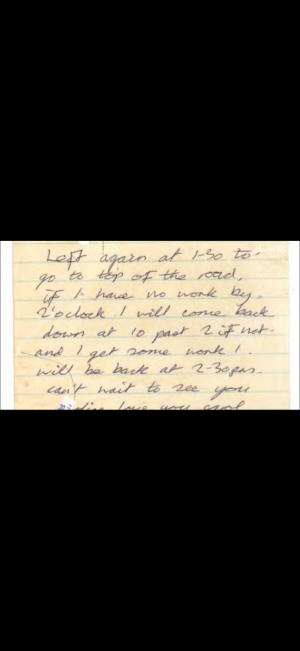 Left again at 1-30 to.
go to top of the road,
if I have no work by.
2'oclock I will come back
down at 10 past 2 if not.
and I get some work I.
will be back at 2-30pm.
can't wait to see you
love you